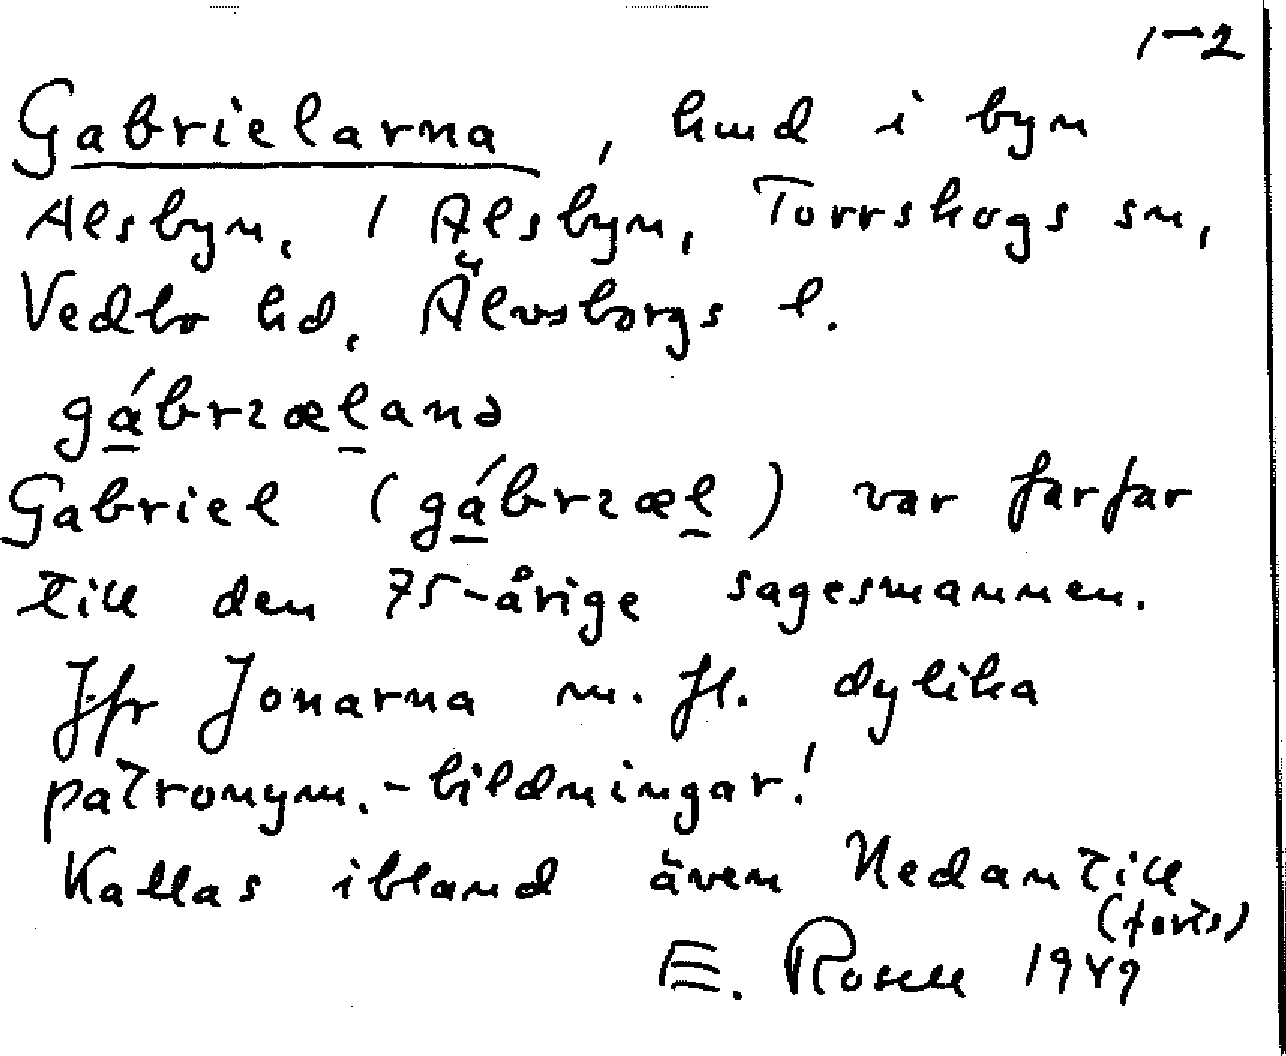 1-2
Gabrielarna, hmd i byn
Alsbyn, 1 Alsbyn, Torrskogs sn,
Vedbo hd, Älvsborgs l.
gábrɩæland
Gabriel (gábrɩæl) var farfar
till den 75-årige sagesmannen.
Jfr Jonarna m. fl. dylika
patronym.-bildningar!
Kallas ibland även Nedantill
(forts)
E. Rosell 1949